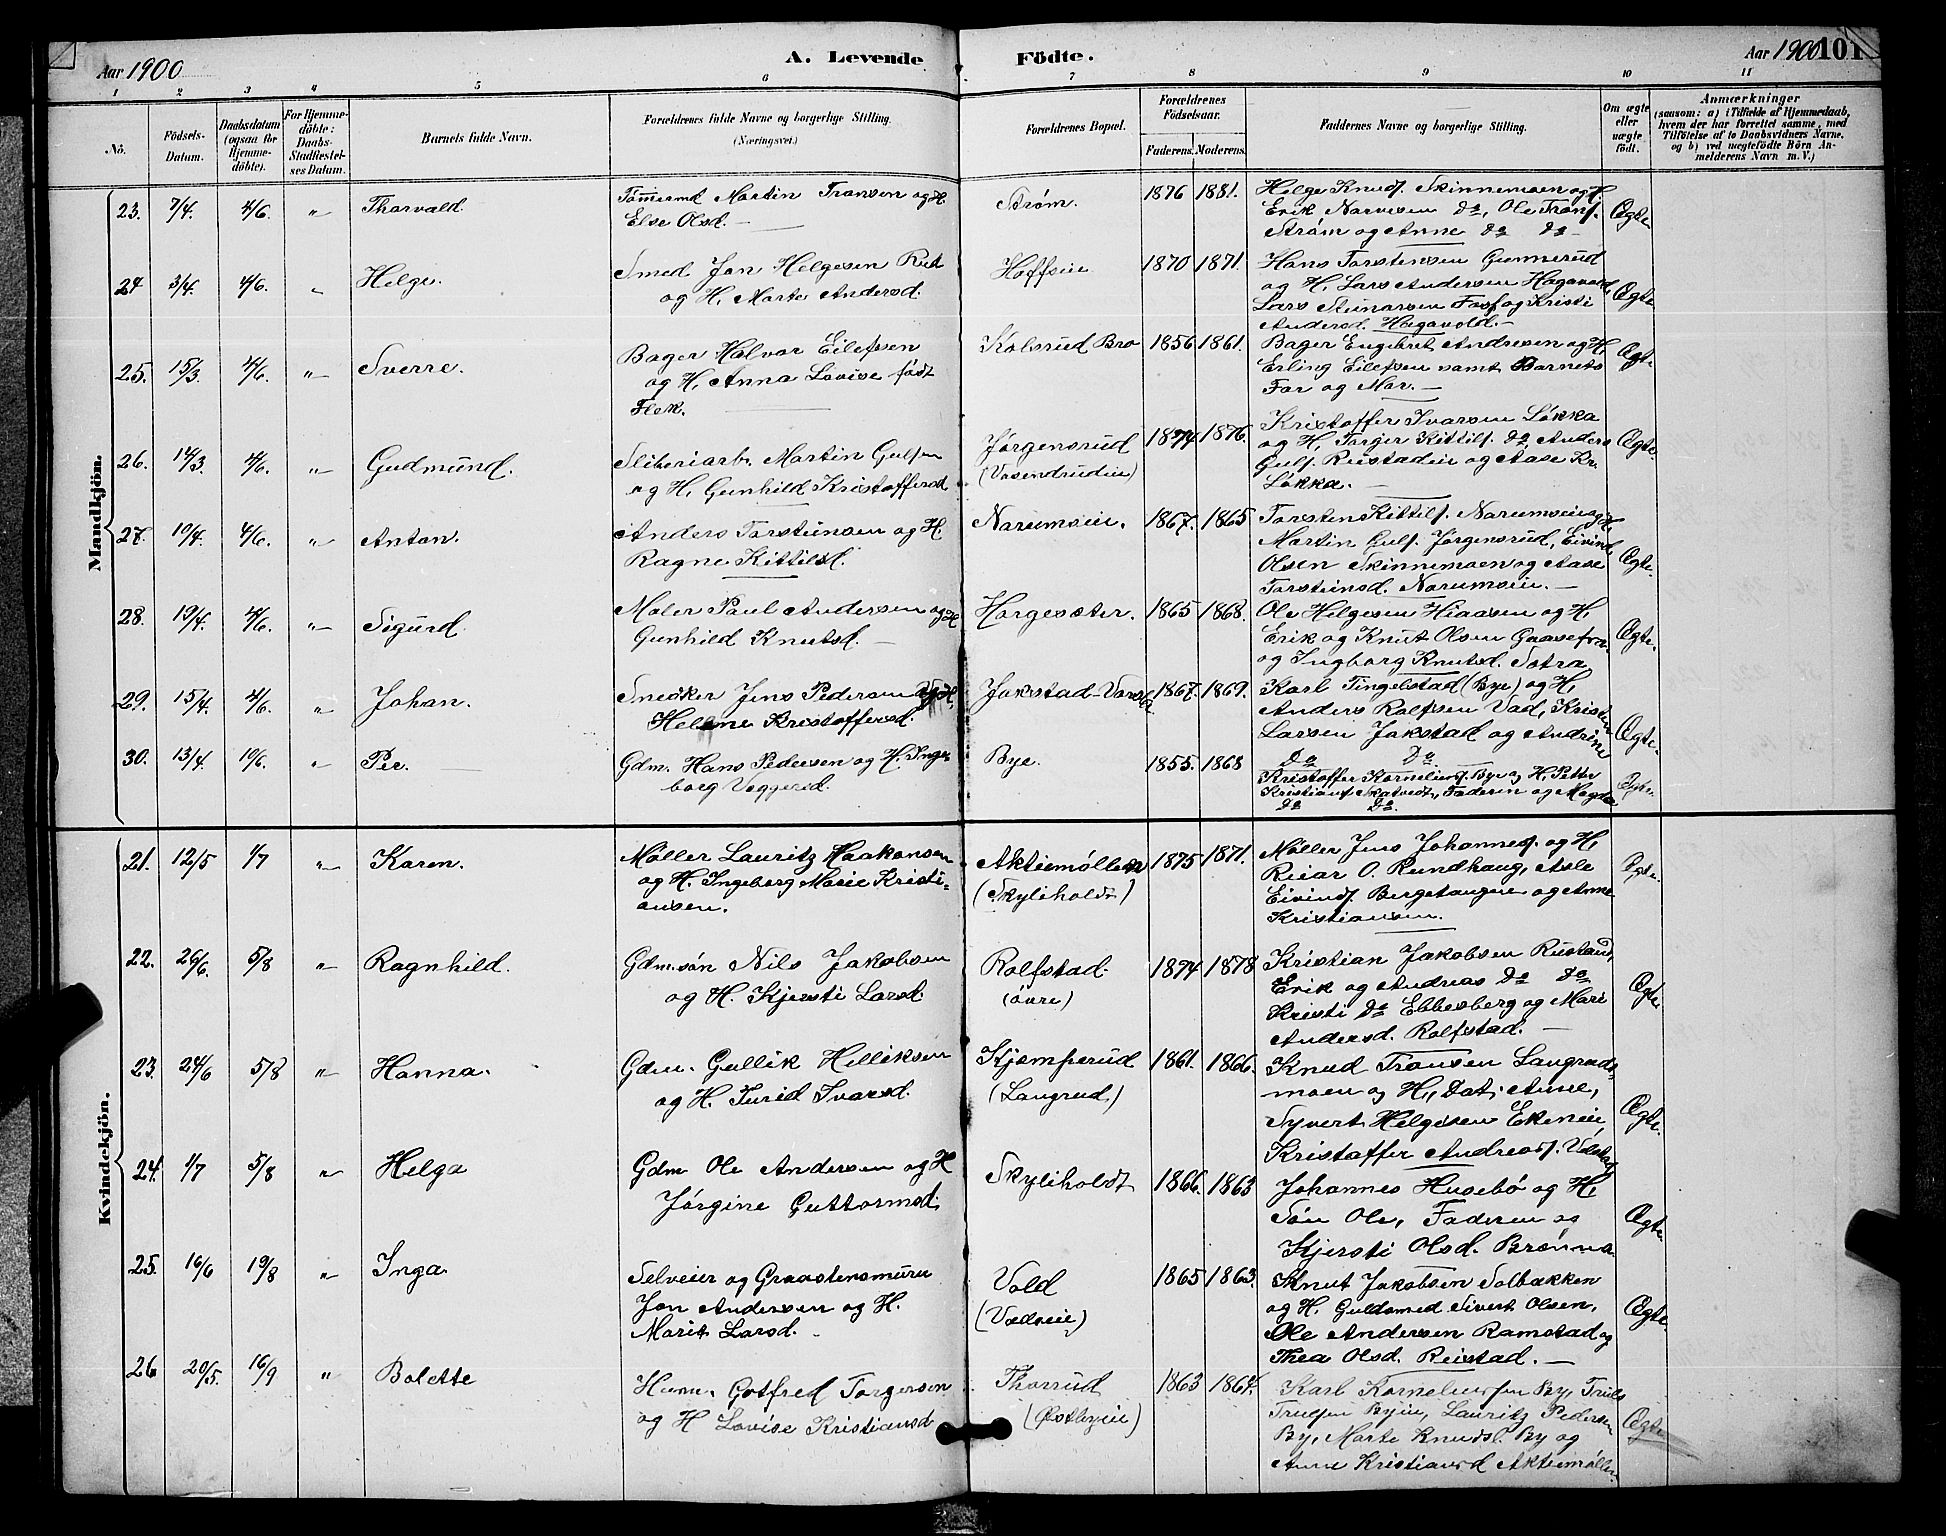 Aar 1900
A. Levende
Födte.
Aar 1900
101
1 2 3 4 5 6 7 8 9 10 11
No.
Födsels-
Datum.
Daabsdatum
(ogsaa for
Hjemme-
döbte).
For Hjemme-
döbte:
Daabs-
Stadfæstel-
ses Datum.
Barnets fulde Navn.
Forældrenes fulde Navne og borgerlige Stilling.
(Næringsvei.)
Forældrenes Bopæl.
Forældrenes
Födselsaar.
Faderens. Moderens.
Faddernes Navne og borgerlige Stilling.
Om ægte
eller
uægte
födt.
Anmærkninger
(saasom: a) i Tilfælde af Hjemmedaab,
hvem der har forrettet samme, med
Tilföielse af to Daabsvidners Navne,
og b) ved uegtefödte Börn An-
melderens Navn m. V.)
Mandkjön.
23. 7/4. 4/6. " Thorvald.
Tømmermd Martin Transen og H.
Else Olsd. —
Strøm. 1876 1881.
Helge Knuds. Skinnemoen og H,
Erik Narvesen Do, Ole Trans.
Strøm og Anne Do Do —
Ægte
24 3/4. 4/6. " Helge.
Smed Jon Helgesen Rud
og H, Marte Andersd.
Hoffseie 1870 1871.
Hans Torstensen Gunnerud
og H, Lars Andersen Hagavold,
Lars Steinarsen Foss og Kristi
Andersd. Hagavold. —
Ægte
25. 15/3 4/6. " Sverre.
Bager Halvor Eilefsen
og H, Anna Lovise født
Flek.
Kolsrud Bro 1856 1861.
Bager Engebret Andresen og H,
Erling Eilefsen samt Barnets
Far og Mor. —
Ægte.
26. 14/3 4/6. " Gudmund.
Sliberiarb. Martin Gulsen
og H, Gunhild Kristoffersd
Jørgensrud
(Vesendrudeie)
1874 1876.
Kristoffer Ivarsen Løkka
og H, Torger Kittils. Do, Anders
Guls. Rustadeie og Aase Kr.
Løkka. —
Ægte.
27. 10/4. 4/6. " Anton.
Anders Torsteinsen og H.
Ragne Kittilsd.
Narumseie. 1867. 1865
Torsten Kittils. Narumseie og H,
Martin Guls. Jørgensrud, Eivind
Olsen Skinnemoen og Aase
Torsteinsd. Narumseie. —
Ægte.
28. 19/4. 4/6. " Sigurd.
Maler Paul Andersen og H
Gunhild Knutsd. —
Horgesæter. 1865 1868.
Ole Helgesen Hiaasen og H,
Erik og Knut Olsen Gaasefra.
og Ingborg Knutsd. Sotra
Ægte.
29. 15/4. 4/6. " Johan.
Snedker Jens Pedersen og H,
Helene Kristoffersd.
1867. 1869.
Karl Tingelstad (Bye) og H,
Anders Rolfsen Vad, Kristen
Larsen Jokstad og Andrine
Do Do
Ægte.
30. 13/4. 10/6. " Per.
Gdm. Hans Pedersen og H. Inge-
borg Veggersd.
Bye. 1855. 1868
Kristoffer Kornelius. Bye og H, Petter
Kristians. Skatvedt, Faderen og Magda
Do Do.
Ægte.
Kvindekjön.
21. 12/5 1/7 " Karen.
Møller Lauritz Haakonsen
og H. Ingeborg Marie Kristi-
ansen.
Aktiemøllen
(Skyliholdt)
1875 1871.
Møller Jens Johannes. og H,
Reiar O. Rundhaug, Asle
Eivinds. Bergetangne og Anne
Kristiansen.
Ægte.
22. 26/6. 5/8 " Ragnhild.
Gdm.søn Nils Jakobsen
og H. Kjersti Larsd.
Rolfstad.
(øvre)
1874 1878
Kristian Jakobsen Rustand,
Erik og Andreas Do Do
Kristi Do Ebbesberg og Mari
Andersd. Rolfstad. —
Ægte.
23. 24/6 5/8 " Hanna.
Gdm. Gullik Helliksen
og H. Turid Ivarsd.
Kjømperud
(Langrud)
1861. 1866.
Knud Transen Langruds-
moen og H, Dat. Anne,
Syvert Helgesen Ekeneie,
Kristoffer Andreas.
Ægte.
24. 1/7 5/8 " Helga
Gdm Ole Andersen og H
Jørgine Guttormsd.
Skyliholdt 1866. 1863
Johannes Husebø og H,
Søn Ole, Faderen og
Kjersti Olsd. Brønna.
Ægte.
25. 16/6 19/8 " Inga
Selveier og Graastensmurer
Jon Andersen og H.
Marit Larsd. -
Vold
(Voldseie)
1865 1863.
Knut Jakobsen Solbakken
og H. Guldsmed Sivert Olsen,
Ole Andersen Ramstad og
Thea Olsd. Reistad. —
Ægte.
26 20/5. 16/9 " Bolette
Husm. Gotfred Torgersen
og H Lovise Kristiansd
Thorrud
(Østbyeie)
1863 1864.
Karl Korneliussen By, Truls
Trulsen Byeie, Lauritz Pedersen
By, Marte Knudsd. By og
Anne Kristiansd Aktiemøllen.
Ægte